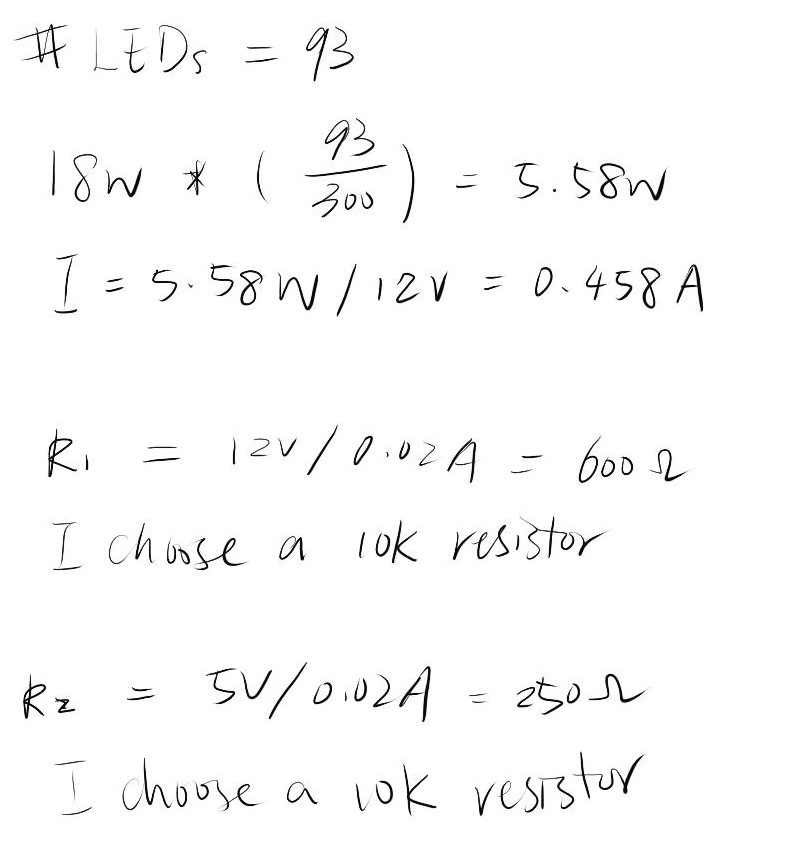 # LEDs = 93
18W * ( 93/300 ) = 5.58W
I = 5.58W / 12V = 0.458A
R1 = 12V / 0.02A = 600Ω
I choose a 10K resistor
R2 = 5V / 0.02A = 250Ω
I choose a 10K resistor